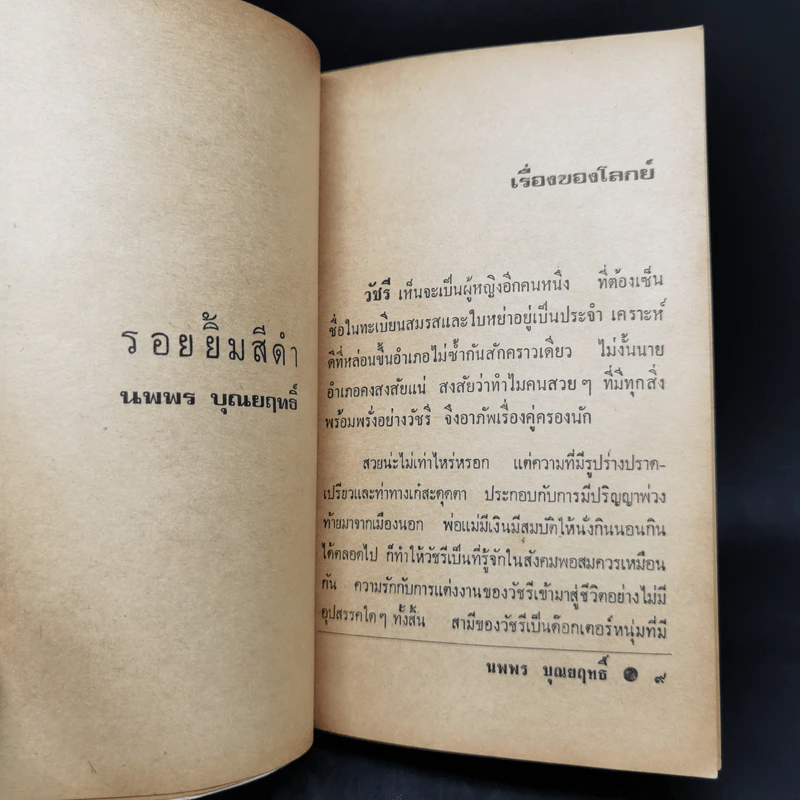 รอยยิ้มสีดำ
นพพร บุณยฤทธิ์
เรื่องของโลกย์
วัชรี เห็นจะเป็นผู้หญิงอีกคนหนึ่ง ที่ต้องเซ็น
ชื่อในทะเบียนสมรสและใบหย่าอยู่เป็นประจำ เคราะห์
ดีที่หล่อนขึ้นอำเภอไม่ซ้ำกันสักคราวเดียว ไม่งั้นนาย
อำเภอคงสงสัยแน่ สงสัยว่าทำไมคนสวย ๆ ที่มีทุกสิ่ง
พร้อมพรั่งอย่างวัชรี จึงอาภัพเรื่องคู่ครองนัก
สวยน่ะไม่เท่าไหร่หรอก แต่ความที่มีรูปร่างปราด-
เปรียวและท่าทางเก๋สะดุดตา ประกอบกับการมีปริญญาพ่วง
ท้ายมาจากเมืองนอก พ่อแม่มีเงินมีสมบัติให้นั่งกินนอนกิน
ได้ตลอดไป ก็ทำให้วัชรีเป็นที่รู้จักในสังคมพอสมควรเหมือน
กัน ความรักกับการแต่งงานของวัชรีเข้ามาสู่ชีวิตอย่างไม่มี
อุปสรรคใด ๆ ทั้งสิ้น สามีของวัชรีเป็นด๊อกเตอร์หนุ่มที่มี
นพพร บุณยฤทธิ์ ๙